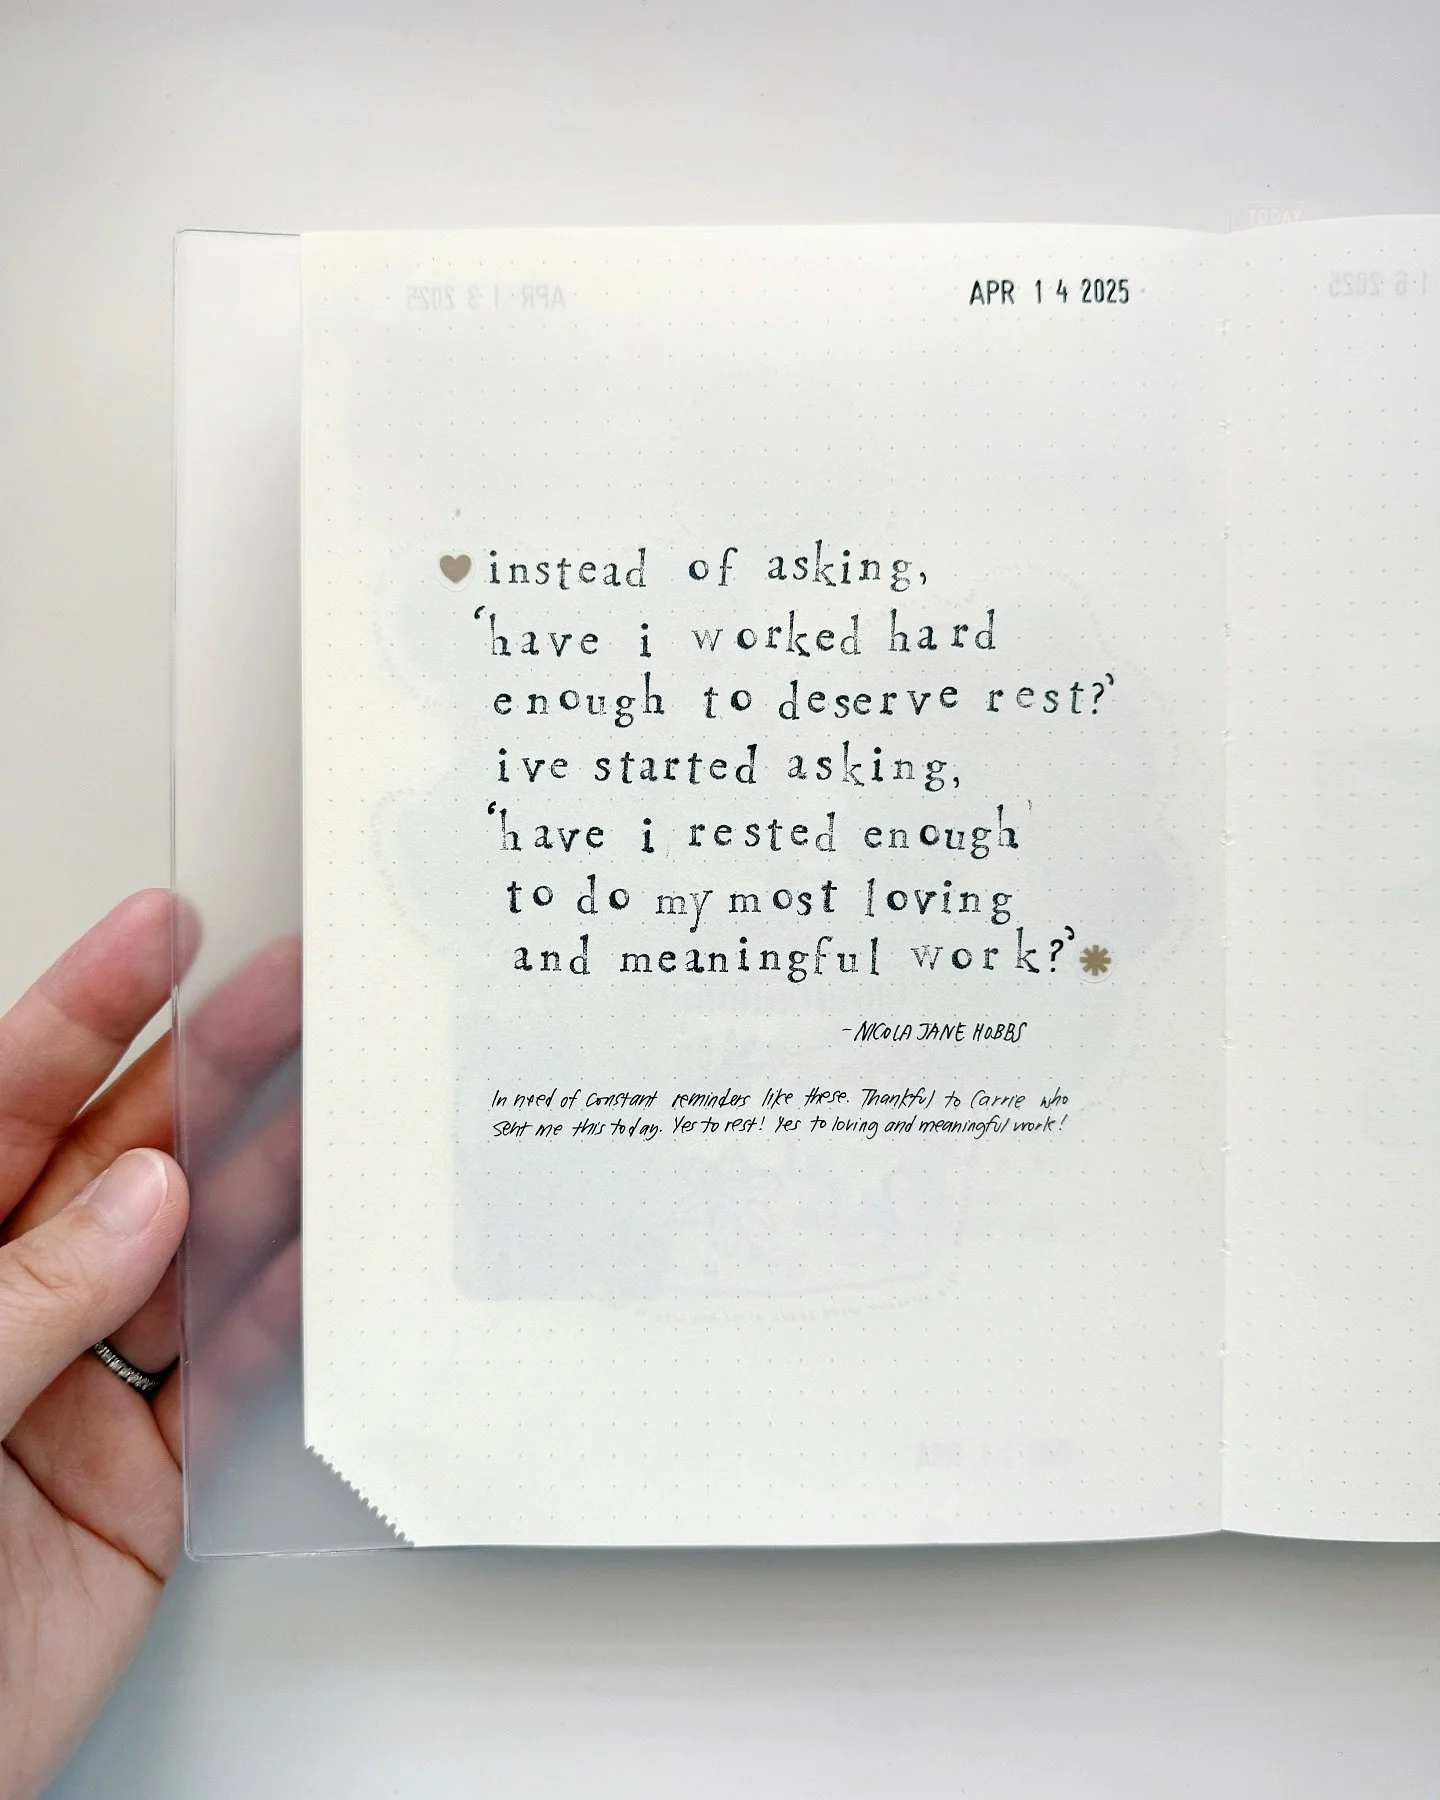 TODAY
APR 13 2025
APR 14 2025
instead of asking,
‘have i worked hard
enough to deserve rest?’
ive started asking,
‘have i rested enough'
to do my most loving
and meaningful work?’
-NICOLA JANE HOBBS
In need of constant reminders like these. Thankful to Carrie who
sent me this today. Yes to rest! Yes to loving and meaningful work!